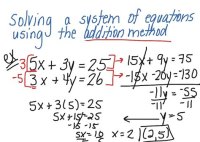 Solving a system of equations
using the addition method
ex
3[5x + 3y = 25] → 15x + 9y = 75
-5[3x + 4y = 26] → -15x - 20y = -130
-11y = -55
-11 -11
5x + 3(5) = 25
y = 5
5x + 15 = 25
-15 -15
5x = 10 x = 2 (2,5)